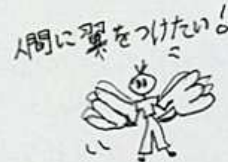 人間に翼をつけたい!